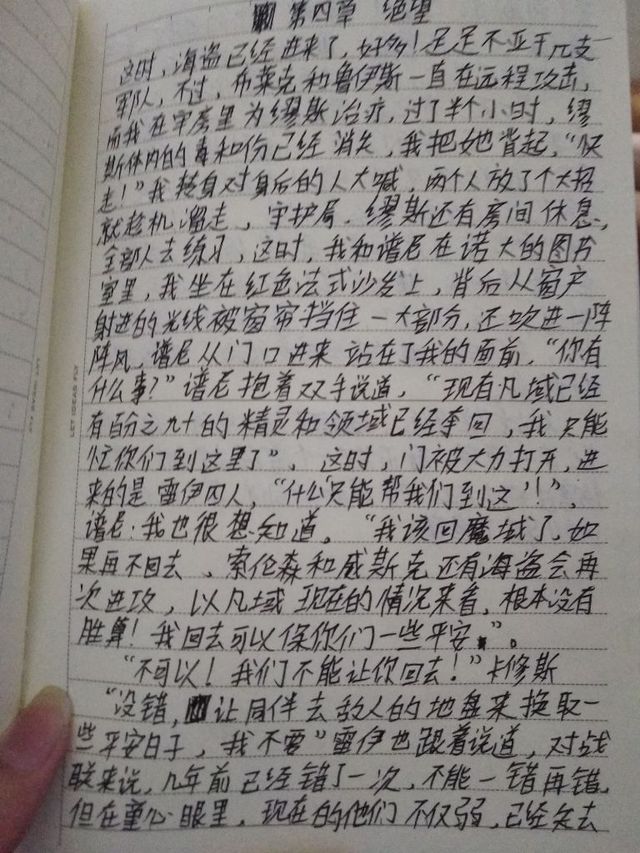 第四章 绝望
这时，海盗已经进来了，好多！足足不亚于几支
军队，不过，布莱克和鲁伊斯一直在远程攻击，
而我在牢房里为缪斯治疗，过了半个小时，缪
斯体内的毒和伤已经消失，我把她背起，“快
走！”我转身对身后的人大喊，两个人放了个大招
就趁机溜走，守护局，缪斯还有房间休息、
全部人去练习，这时，我和谱尼在诺大的图书
室里，我坐在红色法式沙发上，背后从窗户
射进的光线被窗帘挡住一大部分，还吹进一阵
阵风，谱尼从门口进来站在了我的面前，“你有
什么事？”谱尼抱着双手说道，“现有凡域已经
有百分之九十的精灵和领域已经夺回，我只能
忙你们到这里了”，这时，门被大力打开，进
来的是雷伊四人，“什么只能帮我们到这！”，
谱尼：我也很想知道。“我该回魔域了，如
果再不回去、索伦森和威斯克还有海盗会再
次进攻，以凡域现在的情况来看，根本没有
胜算！我回去可以保你们一些平安”。
“不可以！我们不能让你回去！”卡修斯
“没错，让同伴去敌人的地盘来换取一
些平安日子，我不要”雷伊也跟着说道，对战
联来说，几年前已经错了一次，不能一错再错，
但在童心眼里，现在的他们不仅弱，已经失去